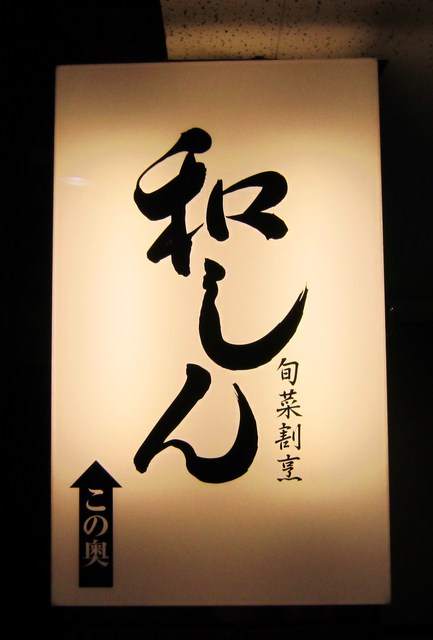 和しん
旬菜割烹
この奥